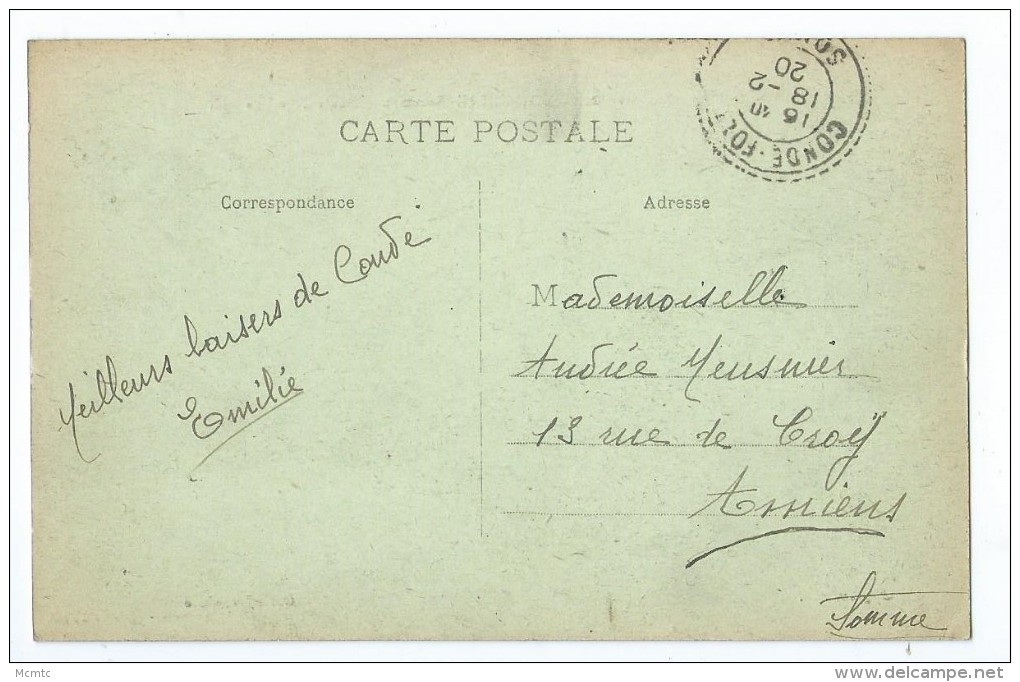 CARTE POSTALE
Correspondance
Meilleurs baisers de Condé
Emilie
Adresse
Mademoiselle
Andrée Meusnier
13 rue de Croÿ
Amiens
Somme
CONDE-FOLIE
SOMME
16 40
18 -2
20
Mcmtc
www.delcampe.net